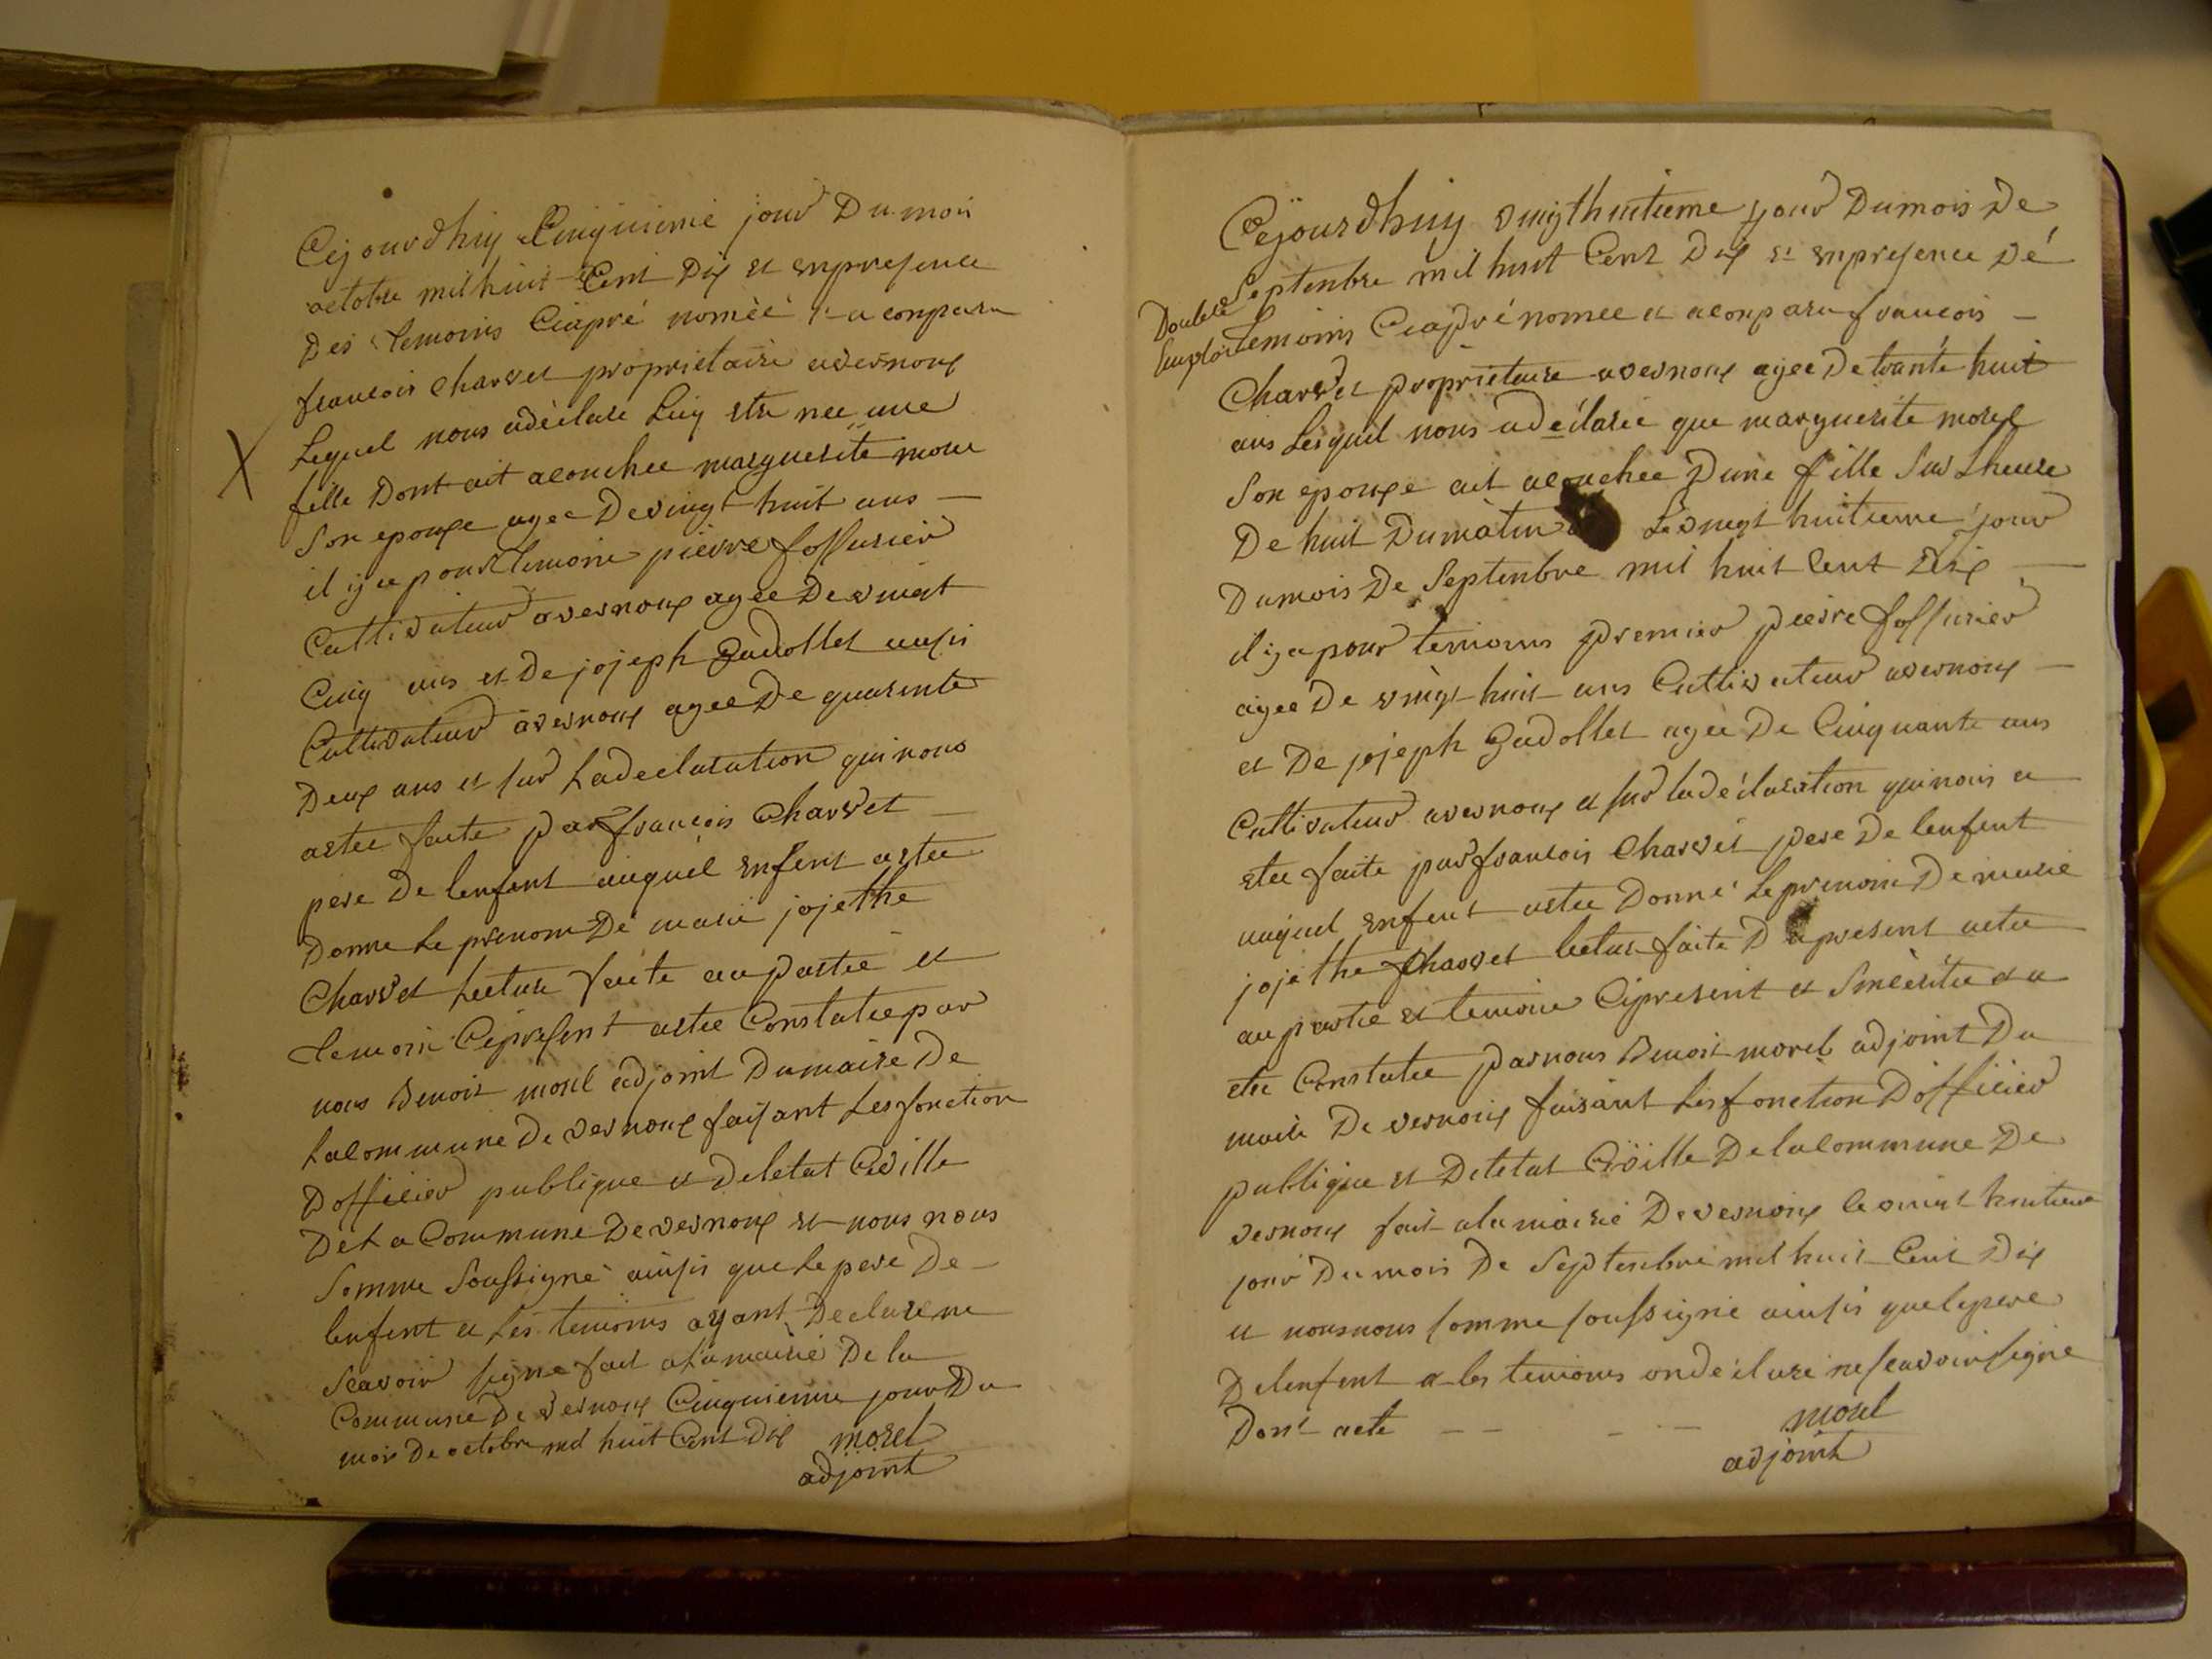 Cejourdhuy Cinquieme jour Du mois
octobre mil huit Cent Dix et enpresence
Des temoins Ciapré nomèé a conparu
francois charvet proprietaire avernoux
Lequel nous adéclaré Luy etre nee une
fille Dont ait acouchee marguerite morel
Son epouxe agee De vingt huit ans —
il y a pour temoin pierre fossurier
Cultivateur avernoux agee De vingt
Cinq ans et De jojeph gadollet aussi
Cultivateur avernoux agee De quarente
Deux ans et sur La declaration qui nous
aetee faite par francois Charvet —
pere De lenfent auquel enfent aetee
Donne Le prenom De marie jojethe
Charvet Lecture faite au partie et
temoin Cipresent aetee Constatee par
nous Benoit morel adjoint Dumaire De
Lacommune De vernoux faisant Les fonction
Dofficier publique et Deletat Civille
De La Commune De vernoux et nous nous
Somme Soussigné ainsis que Le pere De —
lenfent et Les temoins ayant Declare ne
Scavoir signe fait a La mairie De la
Commune De vernoux Cinquieme jour Du
mois De octobre mil huit Cent Dix morel
adjoint
Cejourdhuy vingthuitieme jour Dumois De
Septenbre mil huit Cent Dix et enpresence Dé
Double
temoins Ciapré nomee et aconparu francois —
Charvet proprietaire avernoux agee De trante huit
ans Lesquel nous adeclarée que marguerite morel
Son epouxe ait acouchee Dune fille Sur Lheure
De huit Dumatin Le vingt huitieme jour
Dumois De Septenbre mil huit Cent Dix —
il y a pour temoins premier pierre fossurier
agee De vingt huit ans Cultivateur avernoux —
et De jojeph gadollet agée De Cinquante ans
Cultivateur avernoux et sur la déclaration qui nous a
etee faite par francois Charvet pere De lenfent
auquel enfent aetee Donné Le prenom De marie
jojethe Charvet lecture faite Du present acte
au partie et temoin Cipresent et a
etee Constatee par nous Benoit morel adjoint Du
maire De vernoux faisant Les fonction Dofficier
publique et Deletat Civille De lacommune De
vernoux fait ala mairie De vernoux le vingt huitieme
jour Du mois De Septenbre mil huit Cent Dix
et nous nous somme soussigné ainsis que lepere
De lenfent et les temoins onde clare ne scavoir signe
Dont acte — — — — morel
adjoint